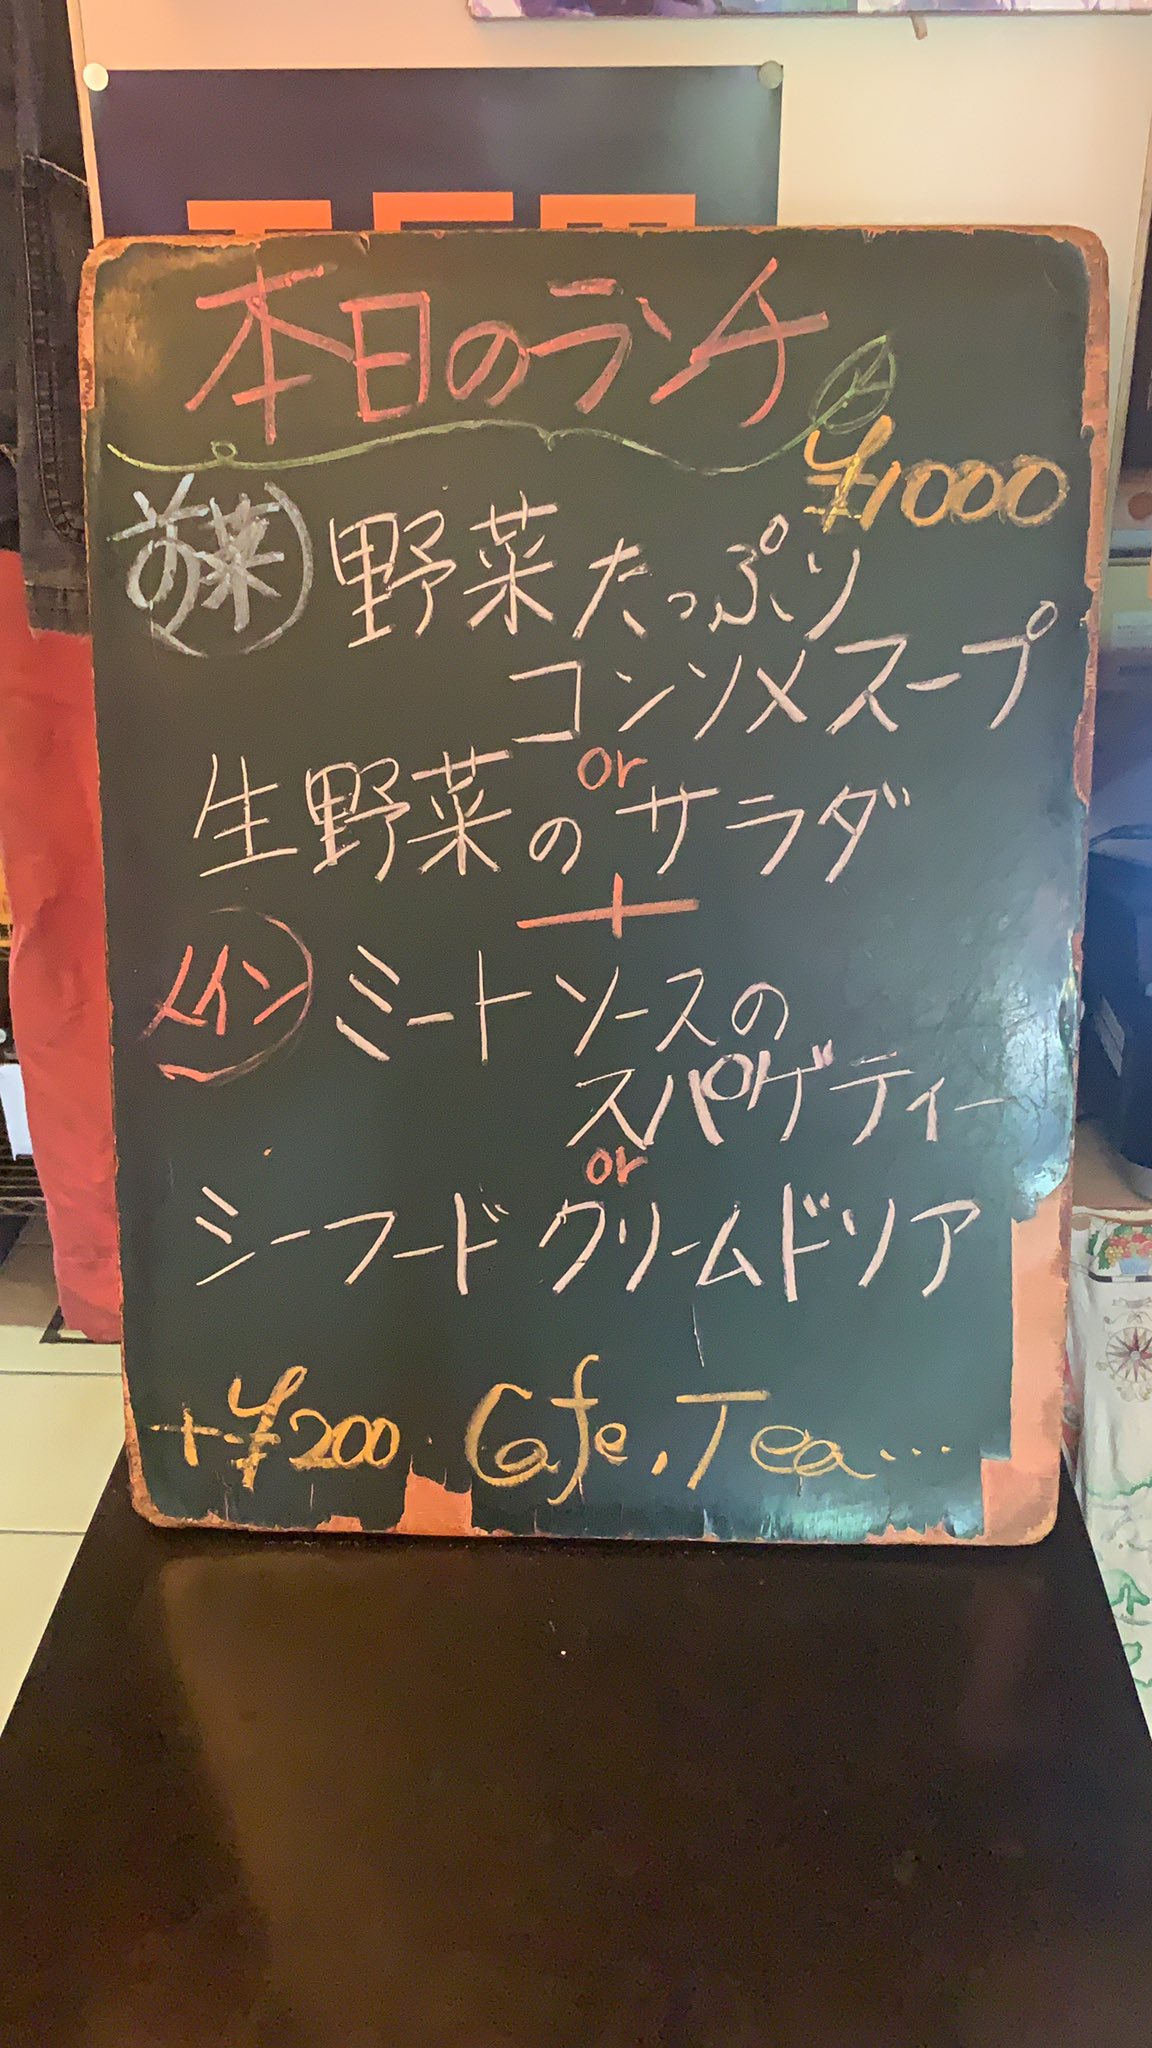 本日のランチ
¥1000
前菜 野菜たっぷり
コンソメスープ
or
生野菜のサラダ
+
メイン ミートソースの
スパゲティー
or
シーフードクリームドリア
+¥200. Cafe, Tea...